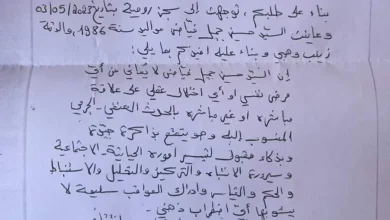 بناء على طلبكم، توجهت إلى سجن رومية بتاريخ 03/05/2023
وعاينت السيد حسن جميل من مواليد سنة 1986، والدته
زينب وهبي وبناء عليه أفيدكم بما يلي:
إن السيد حسن جميل لا يعاني من أي
مرض نفسي او أي اختلال عقلي على علاقة
مباشرة او غير مباشرة بالحدث العنفي - الجرمي
المنسوب إليه وهو يتمتع بذاكرة جيدة
وبذكاء مقبول لتسيير اموره الحياتية - الاجتماعية
وسيرورة الانتباه والتركيز والتحليل والاستنباط
والحكم والقياس وادراك العواقب سليمة لا
يشوبها أي اضطراب ذهني.